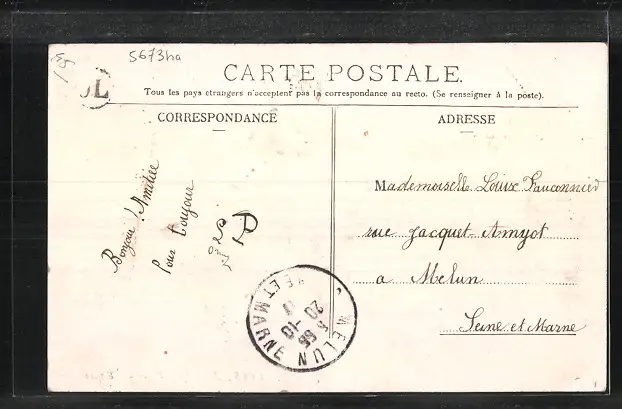 5673ha
OL
CARTE POSTALE.
Tous les pays étrangers n'acceptent pas la correspondance au recto. (Se renseigner à la poste).
CORRESPONDANCE
ADRESSE
Bonjour Amitiée
pour toujour
Mademoiselle Louise Fauconnier
rue Jacquet Amyot
a Melun
Seine et Marne
MELUN
20 -10
ET MARNE